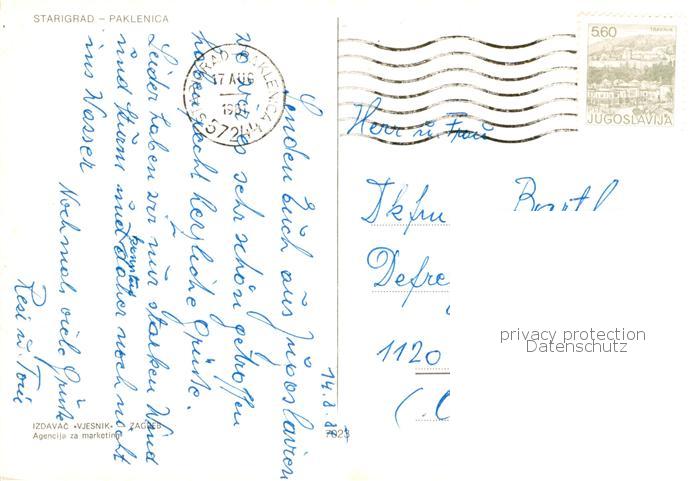 STARIGRAD – PAKLENICA
14.8.
Senden Euch aus Jugoslavien
wo wir es sehr schön getroffen
haben recht herzliche Grüße.
Leider haben wir nur starken Wind
und Sturm und daher noch nicht
ins Wasser
Nochmals viele Grüße
Resi u. Toni
IZDAVAČ «VJESNIK» ZAGREB
Agencija za marketing
7023
STARIGRAD PAKLENICA
17 AUG
57244
5.60
TRAVNIK
JUGOSLAVIJA
Herr u. Frau
Dkfm
Defre
1120
privacy protection
Datenschutz